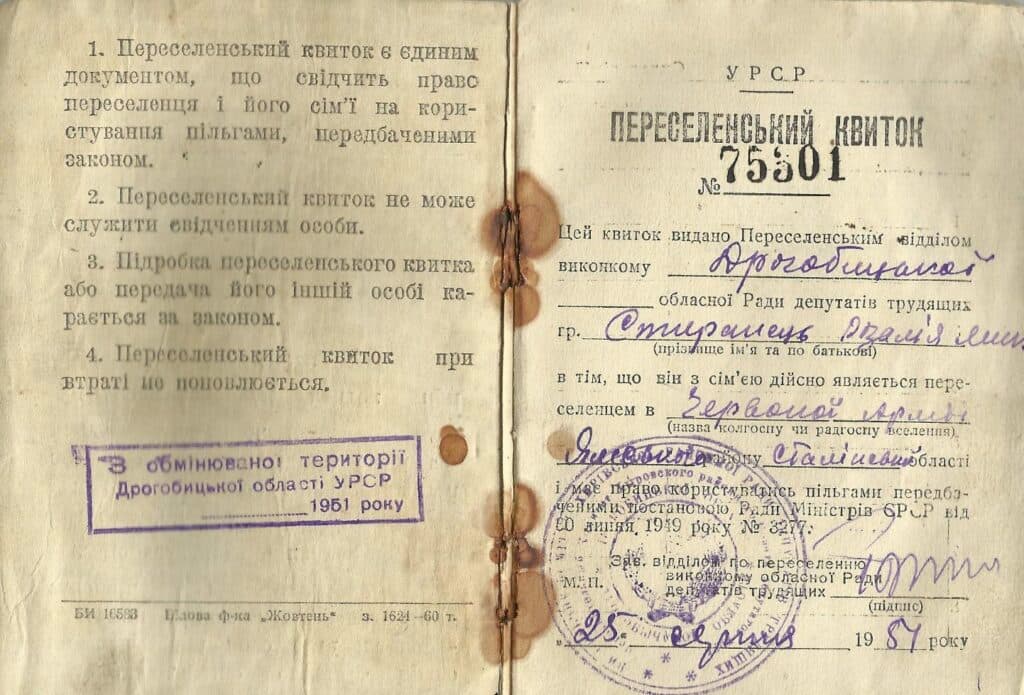 1. Переселенський квиток є єдиним
документом, що свідчить право
переселенця і його сім'ї на кори-
стування пільгами, передбаченими
законом.
2. Переселенський квиток не може
служити свідченням особи.
3. Підробка переселенського квитка
або передача його іншій особі ка-
рається за законом.
4. Переселенський квиток при
втраті не поновлюється.
З обмінюваної території
Дрогобицької області УРСР
1951 року
БИ 16583 ф-ка „Жовтень" з. 1624—60 т.
УРСР
ПЕРЕСЕЛЕНСЬКИЙ КВИТОК
№ 75301
Цей квиток видано Переселенським відділом
виконкому Дрогобицької
обласної Ради депутатів трудящих
гр. Стиранець
(прізвище ім'я та по батькові)
в тім, що він з сім'єю дійсно являється пере-
селенцем в Червоной Армії
(назва колгоспу чи радгоспу вселення)
району Сталінської області
і має право користуватись пільгами передба-
ченими постановою Ради Міністрів СРСР від
20 липня 1949 року № 3277.
Зав. відділом по переселенню
М.П. виконкому обласної Ради
депутатів трудящих
(підпис)
„25" серпня 1951 року